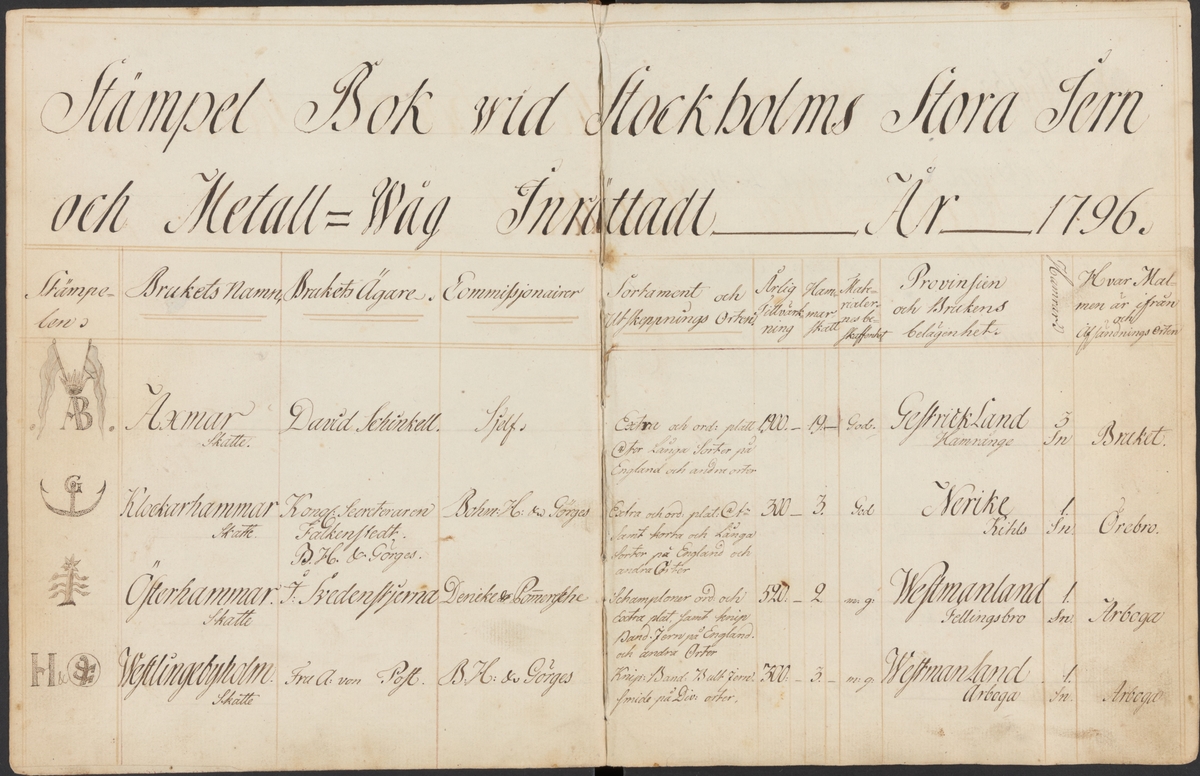 Stämpel Bok wid Stockholms Stora Jern
och Metall=Wåg Inrättadt ____ År ____ 1796.
Stämpe-
len.
Brukets Namn.
Brukets Ägare.
Commissionairer
Sortament och
Utskeppnings Orten
Årlig
tillvärk
ning
Ham
mar
skatt
Mate-
rialer-
nes be-
skaffenhet
Provinsien
och Brukens
belägenhet.
Hamrar
Hvar Mal-
men är ifrån
och
Afsändnings Orten
AB
Axmar
Skatte.
David Schinkell.
Sjelf.
Extra och ord: platt
Och Långa Sorter på
England och andre orter
1,900.
19.
God.
Gestrickland
Hamrånge
3
Sn
Bruket.
G
Klockarhammar
Skatte.
Kongl Secreteraren
Falkenstedt.
B.H. & Görges.
Bohn: H: & Görges
Extra och ord. plat.
samt korta och Långa
Sorter på England och
andra Orter
300.
3.
God
Nerike
Kihls
1.
Sn.
Örebro.
Österhammar.
Skatte
J. Svedenstjerna
Deneke & Pom̅ersche
Schamploner ord och
Extra plat. samt knip
Band Jern på England.
och andra Orter
520.
2
m: g:
Westmanland
Fellingsbro
1.
Sn.
Arboga
H &
Westlingebyholm.
Skatte
Fru A. von Post.
B.H: & Görges
Knip: Band. Bult Jern.
smide på Div: orter.
300.
3.
m: g:
Westmanland
Arboga
1.
Sn.
Arboga